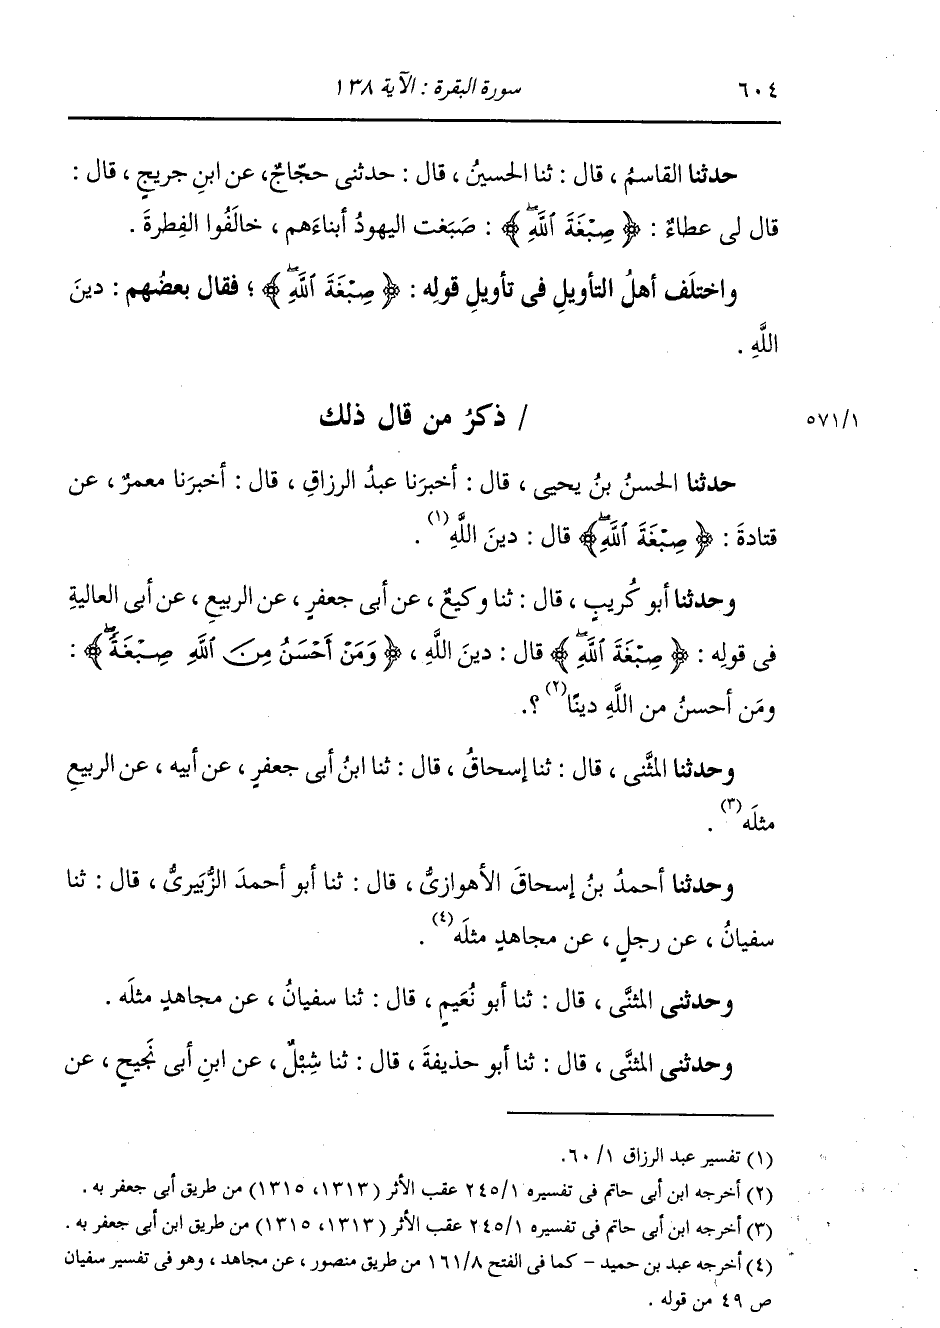 ٦٠٤ سورة البقرة : الآية ١٣٨
حدثنا القاسمُ ، قال : ثنا الحسينُ ، قال : حدثنى حجّاجٌ، عن ابنِ جريجٍ ، قال :
قال لى عطاءٌ : ﴿ صِبْغَةَ ٱللَّهِ ۖ ﴾ : صَبَغت اليهودُ أبناءَهم ، خالَفُوا الفِطرةَ .
واختلَف أهلُ التأويلِ فى تأويلِ قولِه : ﴿ صِبْغَةَ ٱللَّهِ ۖ ﴾ ؛ فقال بعضُهم : دينَ
اللَّهِ .
/ ذكرُ من قال ذلك
٥٧١/١
حدثنا الحسنُ بنُ يحيى ، قال : أخبرَنا عبدُ الرزاقِ ، قال : أخبرَنا معمرٌ ، عن
قتادةَ : ﴿ صِبْغَةَ ٱللَّهِ ۖ ﴾ قال : دينَ اللَّهِ (١) .
وحدثنا أبو كُريبٍ ، قال : ثنا وكيعٌ ، عن أبى جعفرٍ ، عن الربيعِ ، عن أبى العاليةِ
فى قولِه : ﴿ صِبْغَةَ ٱللَّهِ ۖ ﴾ قال : دينَ اللَّهِ ، ﴿ وَمَنْ أَحْسَنُ مِنَ ٱللَّهِ صِبْغَةً ۖ ﴾ :
ومَن أحسنُ من اللَّهِ دينًا (٢) ؟.
وحدثنا المثَّنى ، قال : ثنا إسحاقُ ، قال : ثنا ابنُ أبى جعفرٍ ، عن أبيه ، عن الربيعِ
مثلَه (٣) .
وحدثنا أحمدُ بنُ إسحاقَ الأهوازىُّ ، قال : ثنا أبو أحمدَ الزُّبَيرىُّ ، قال : ثنا
سفيانُ ، عن رجلٍ ، عن مجاهدٍ مثلَه (٤) .
وحدثنى المثنَّى ، قال : ثنا أبو نُعَيمٍ ، قال : ثنا سفيانُ ، عن مجاهدٍ مثلَه .
وحدثنى المثنَّى ، قال : ثنا أبو حذيفةَ ، قال : ثنا شِبْلٌ ، عن ابنِ أبى نَجيحٍ ، عن
(١) تفسير عبد الرزاق ١/ ٦٠.
(٢) أخرجه ابن أبى حاتم فى تفسيره ٢٤٥/١ عقب الأثر (١٣١٣، ١٣١٥) من طريق أبى جعفر به .
(٣) أخرجه ابن أبى حاتم فى تفسيره ٢٤٥/١ عقب الأثر (١٣١٣، ١٣١٥) من طريق ابن أبى جعفر به .
(٤) أخرجه عبد بن حميد – كما فى الفتح ١٦١/٨ من طريق منصور ، عن مجاهد ، وهو فى تفسير سفيان
ص ٤٩ من قوله .